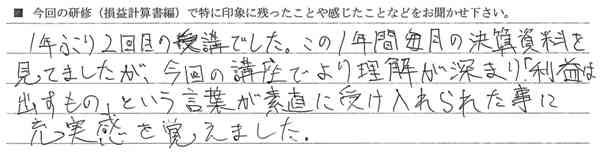 ■ 今回の研修（損益計算書編）で特に印象に残ったことや感じたことなどをお聞かせ下さい。
1年ぶり2回目の受講でした。この1年間毎月の決算資料を
見てましたが、今回の講座でより理解が深まり「利益は
出すもの」という言葉が素直に受け入れられた事に
充実感を覚えました。